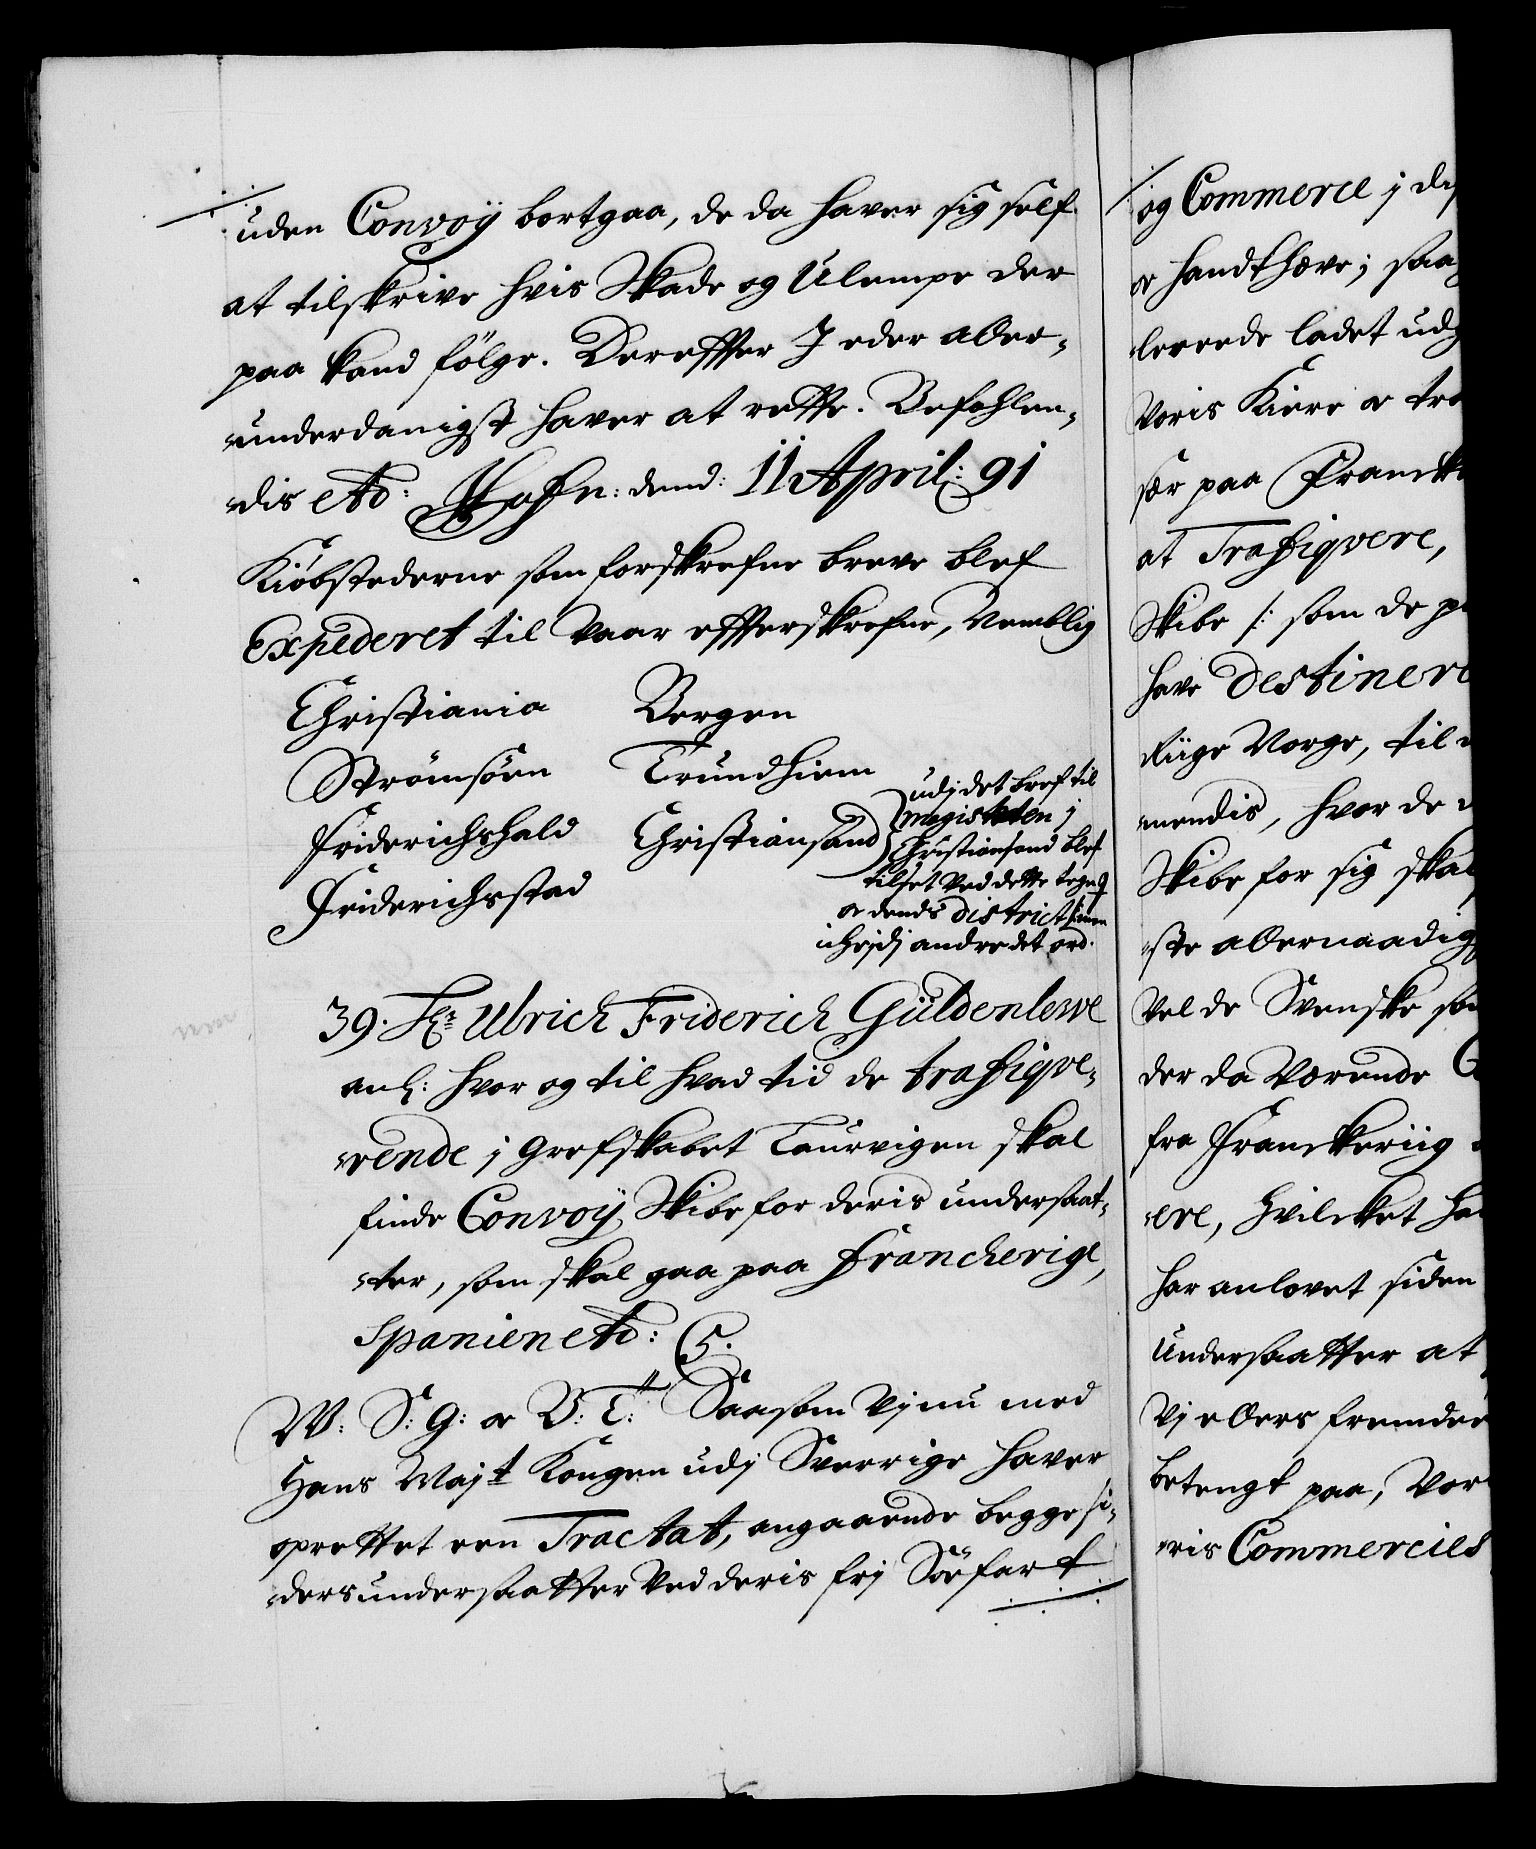 uden Convoÿ bortgaa, de da haver sig self
at tilskrive hvis Skade og Ulempe der
paa kand fölge. Dereffter I eder aller-
underdanigst haver at rette. Befahlen-
dis etc: Hafn: dend: 11 April: 91
Kiöbstederne som forskrefne breve blef
Expederet til vaar effterskrefne, Nemblig
Christiania Bergen
Strömsöen Trundhiem
Friderichshald Christiansand
Friderichsstad
udj det bref til
magistraten j
Christiansand blef
tilset ved dette tegn
oc dends district
i hejdj andre det ord.
39. Hr: Ulrich Friderich Güldenlewe
anl: hvor og til hvad tid de trafiqve-
rende j Grefskabet Laurvigen skal
finde Convoÿ Skibe for deris undersaat-
ter, som skal gaa paa Francherige,
Spanien etc: C5.
W: S: G: oc B: T: Saasom Vj nu med
Hans Majt Kongen udj Sverrige haver
oprettet een Tractat, angaaende begge si-
ders undersaatter ved deris frj Söefart
og Commerce j
oc handthæve; saa
lerede ladet udg
Voris Kiere oc tro
sær paa Franck
at Trafiqvere,
Skibe /: som de p
have Destinere
Riige Norge, til
mendis, hvor de
Skibe for sig skal
ste allernaadig
vel de Svenske som
der da værende
fra Franckeriig
ere, hvilcket ha
har anlovet siden
Undersaatter at
Vj ellers fremdee
betengt paa, Vor
ris Commercies